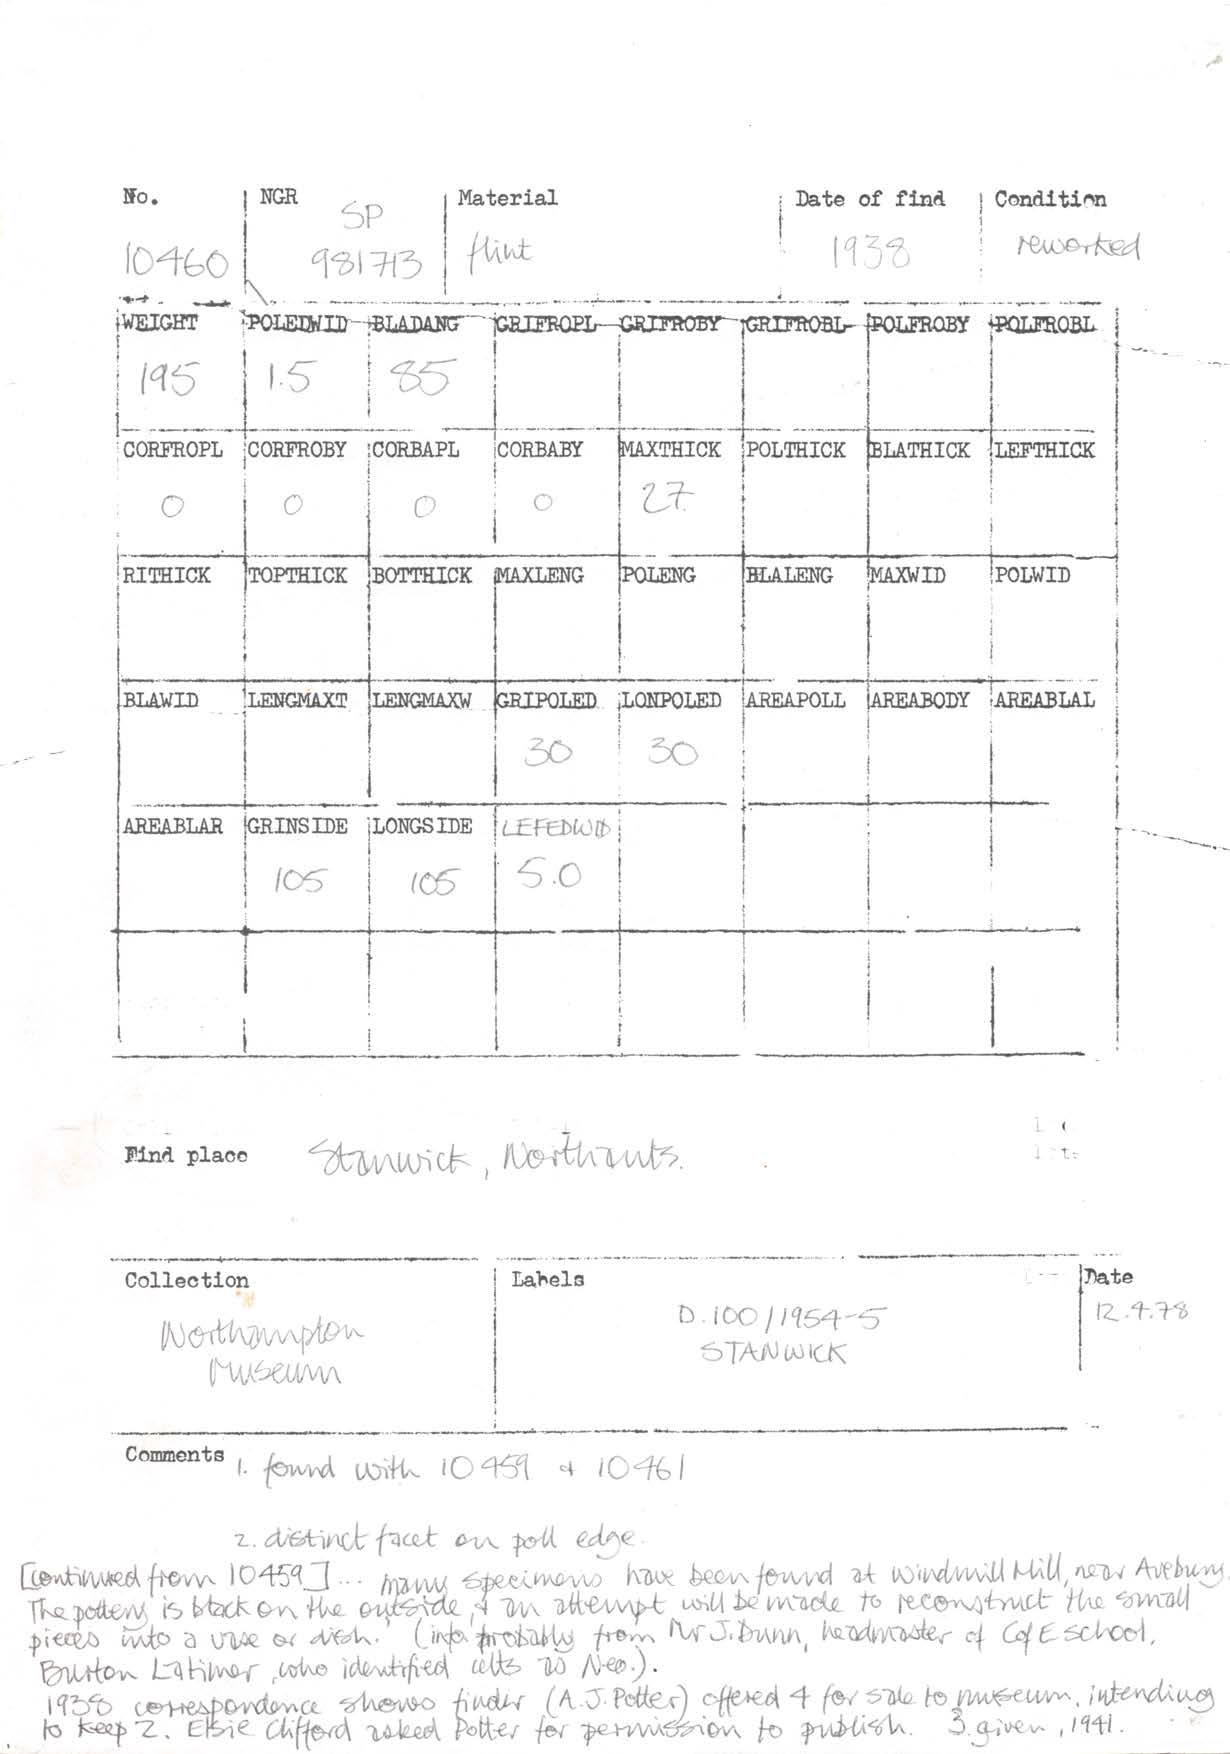 No. NGR Material Date of find Condition
SP
10460 981713 flint 1938 reworked
WEIGHT POLEDWID BLADANG GRIFROPL GRIFROBY GRIFROBL POLFROBY POLFROBL
195 1.5 85
CORFROPL CORFROBY CORBAPL CORBABY MAXTHICK POLTHICK BLATHICK LEFTHICK
0 0 0 0 27
RITHICK TOPTHICK BOTTHICK MAXLENG POLENG BLALENG MAXWID POLWID
BLAWID LENGMAXT LENGMAXW GRIPOLED LONPOLED AREAPOLL AREABODY AREABLAL
30 30
AREABLAR GRINSIDE LONGSIDE LEFEDWID
105 105 5.0
Find place Stanwick, Northants.
Collection Labels Date
Northampton D.100/1954-5 12.4.78
Museum STANWICK
Comments 1. found with 10459 & 10461
2. distinct facet on poll edge.
[continued from 10459] ... many specimens have been found at Windmill Hill, near Avebury.
The pottery is black on the outside, & an attempt will be made to reconstruct the small
pieces into a vase or dish.' (info probably from Mr J. Dunn, headmaster of C of E school,
Burton Latimer, who identified celts as Neo.).
1938 correspondence shows finder (A.J. Potter) offered 4 for sale to museum, intending
to keep 2. Elsie Clifford asked Potter for permission to publish. 3 given, 1941.